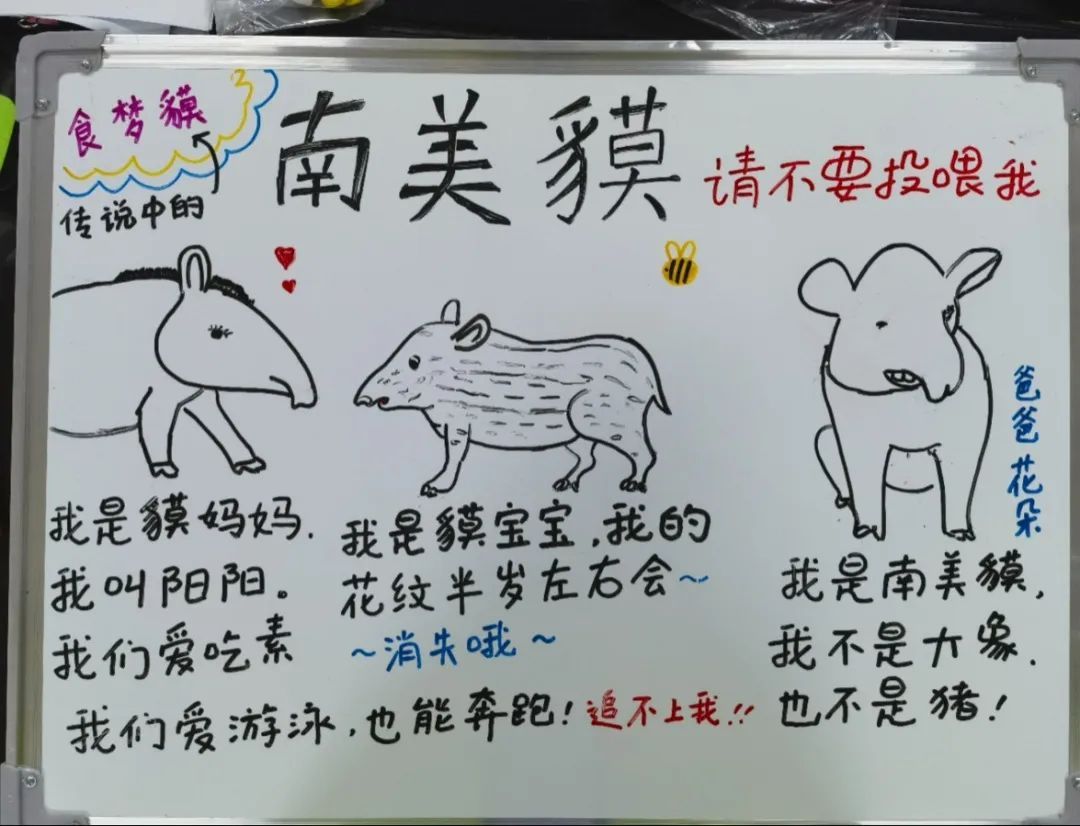 食梦貘
传说中的
南美貘
请不要投喂我
爸爸花朵
我是貘妈妈.
我叫阳阳。
我们爱吃素
我是貘宝宝,我的
花纹半岁左右会~
~消失哦~
我是南美貘,
我不是大象.
也不是猪!
我们爱游泳,也能奔跑!追不上我!!